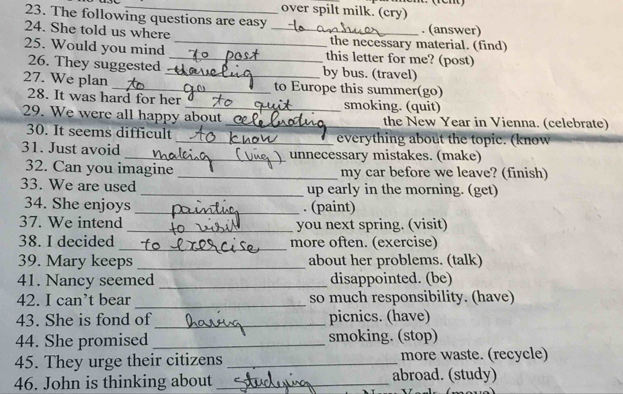 over spilt milk. (cry)
23. The following questions are easy to answer . (answer)
24. She told us where the necessary material. (find)
25. Would you mind to post this letter for me? (post)
26. They suggested traveling by bus. (travel)
27. We plan to go to Europe this summer(go)
28. It was hard for her to quit smoking. (quit)
29. We were all happy about celebrating the New Year in Vienna. (celebrate)
30. It seems difficult to know everything about the topic. (know
31. Just avoid making (Ving) unnecessary mistakes. (make)
32. Can you imagine my car before we leave? (finish)
33. We are used up early in the morning. (get)
34. She enjoys painting . (paint)
37. We intend to visit you next spring. (visit)
38. I decided to exercise more often. (exercise)
39. Mary keeps about her problems. (talk)
41. Nancy seemed disappointed. (be)
42. I can't bear so much responsibility. (have)
43. She is fond of having picnics. (have)
44. She promised smoking. (stop)
45. They urge their citizens more waste. (recycle)
46. John is thinking about studying abroad. (study)